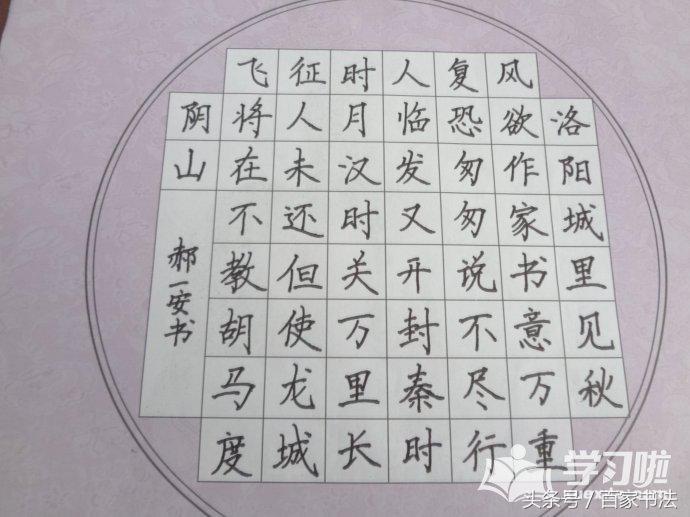 洛阳城里见秋
风欲作家书意万重
复恐匆匆说不尽行
人临发又开封秦时
时月汉时关万里长
征人未还但使龙城
飞将在不教胡马度
阴山
郝一安书
学习啦
头条号/百家书法